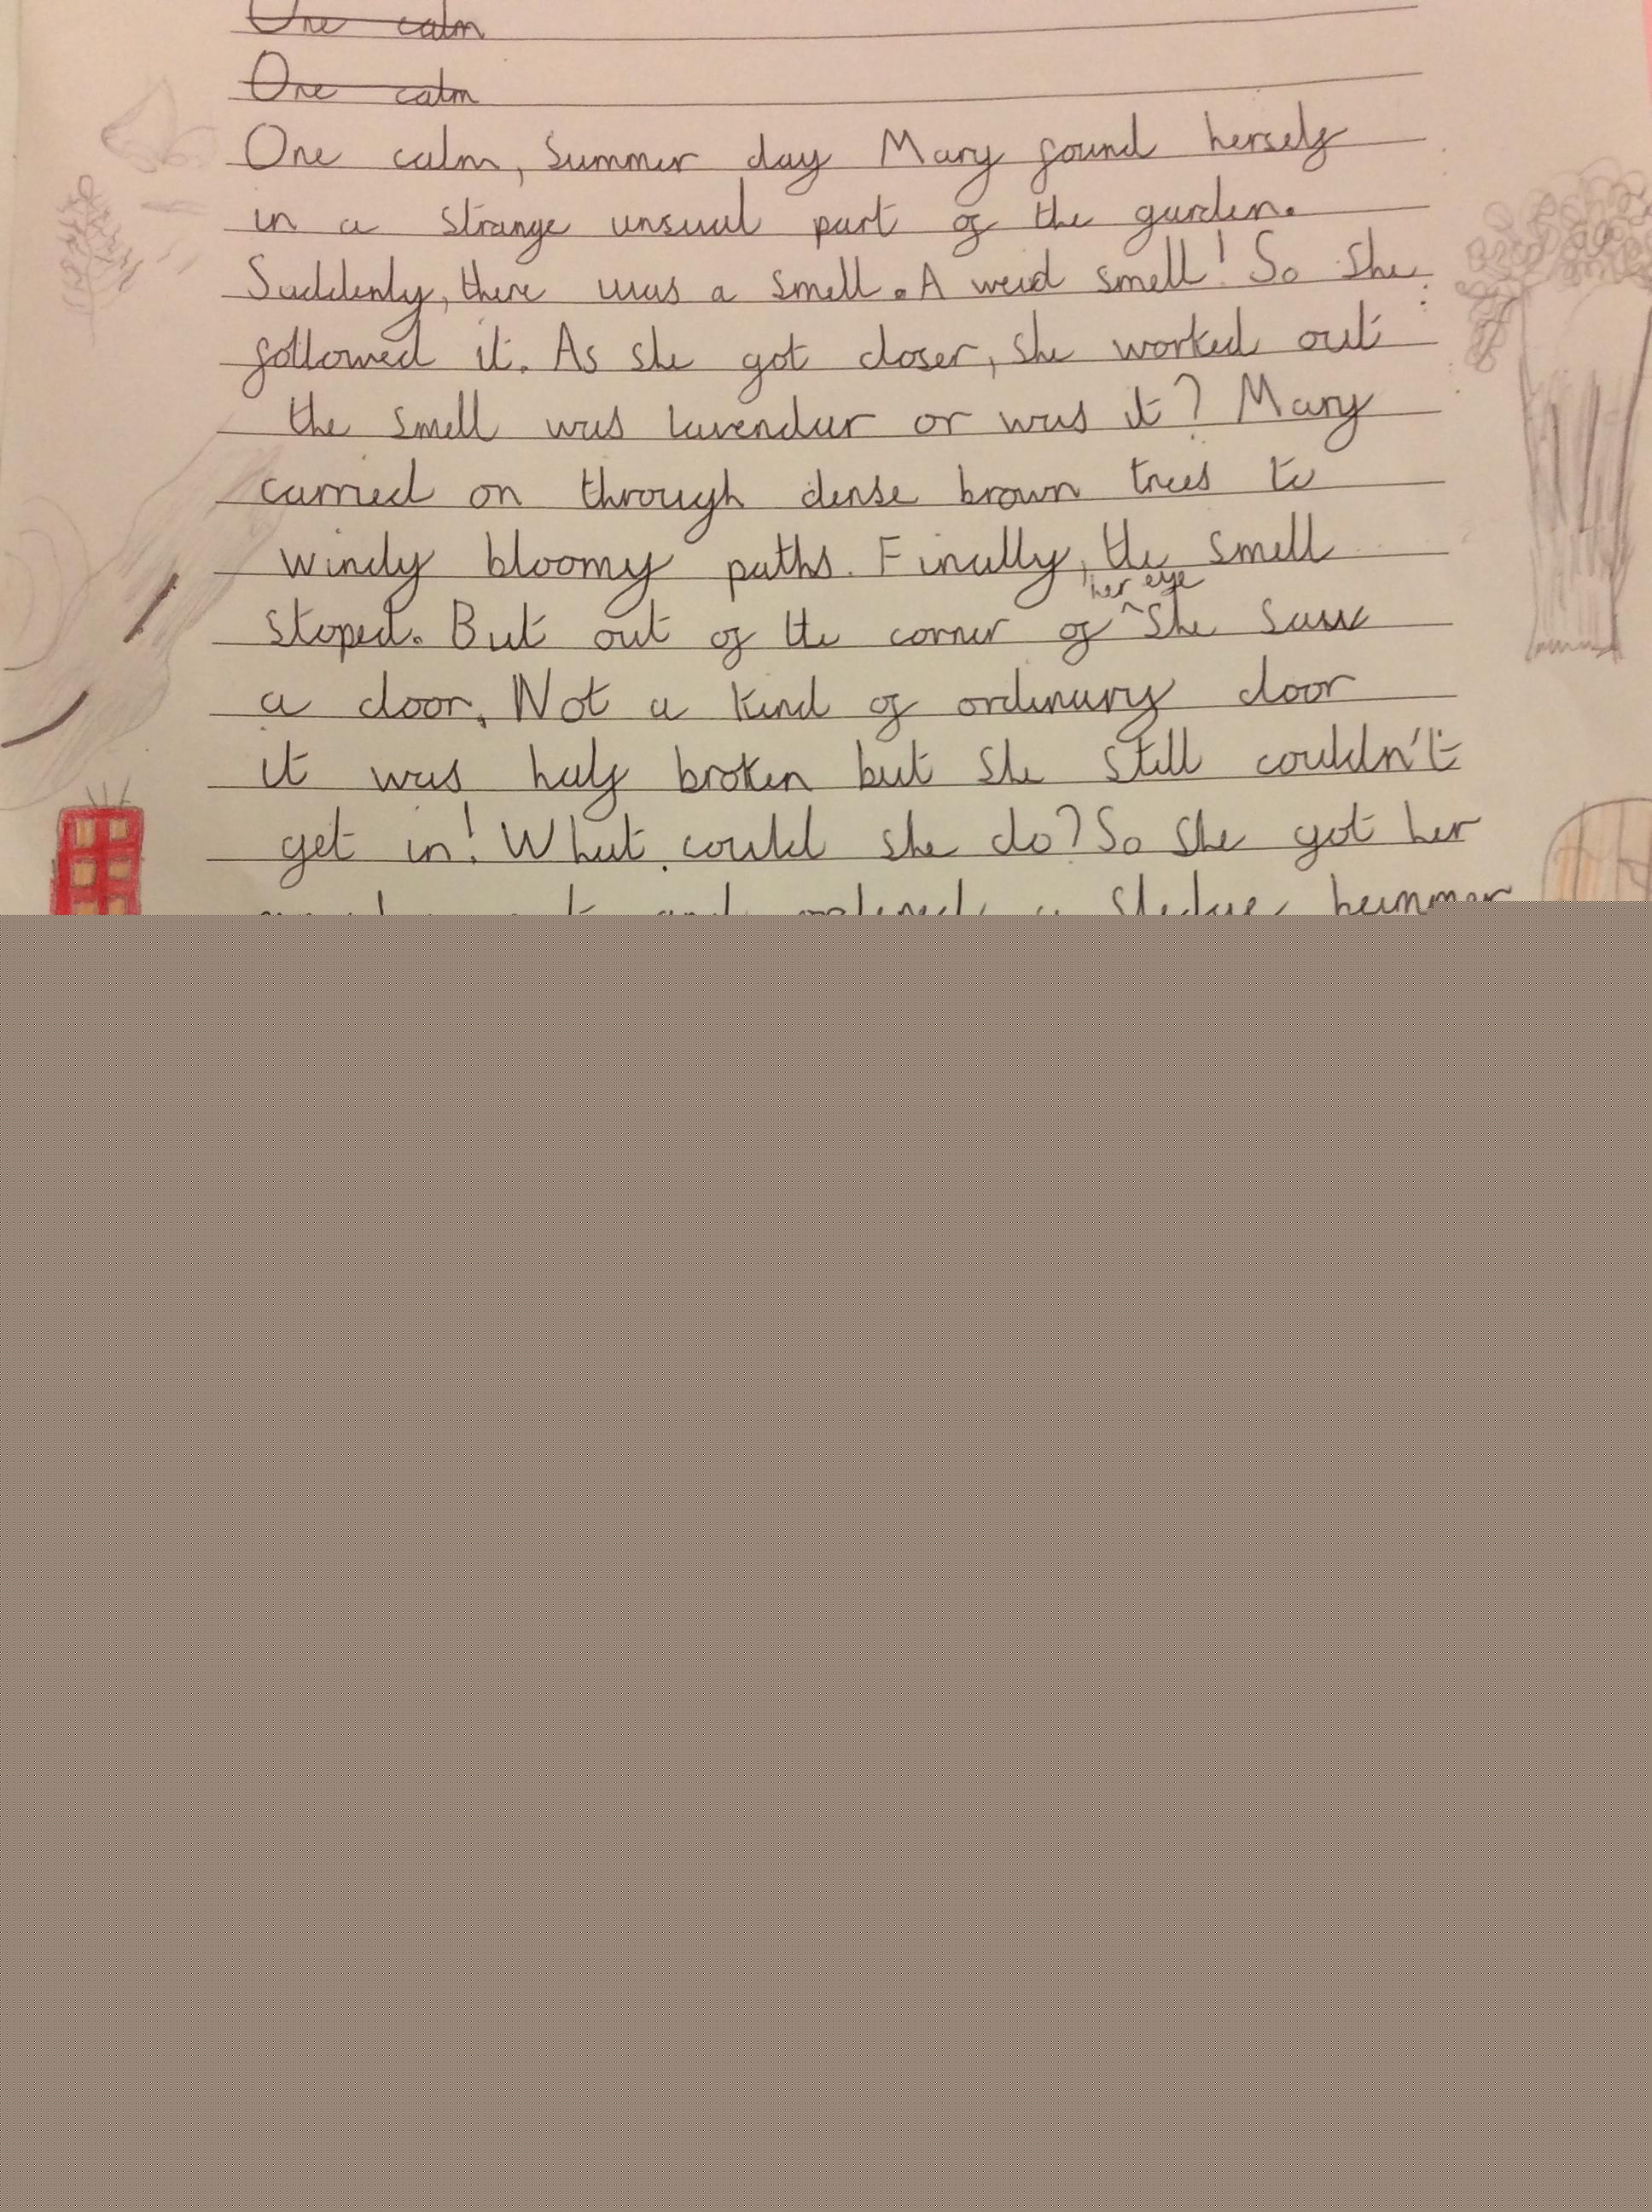 One calm
One calm
One calm, Summer day Mary found herself
in a strange unsual part of the garden.
Suddenly, there was a smell. A weid smell! So she
followed it. As she got closer, she worked out
the smell was lavendar or was it? Mary
carried on through dense brown trees to
windy bloomy paths. Finally, the smell
stoped. But out of the corner of her eye she saw
a door. Not a kind of ordinary door
it was half broken but she still couldn't
get in! What could she do? So she got her
and a sledge hammer